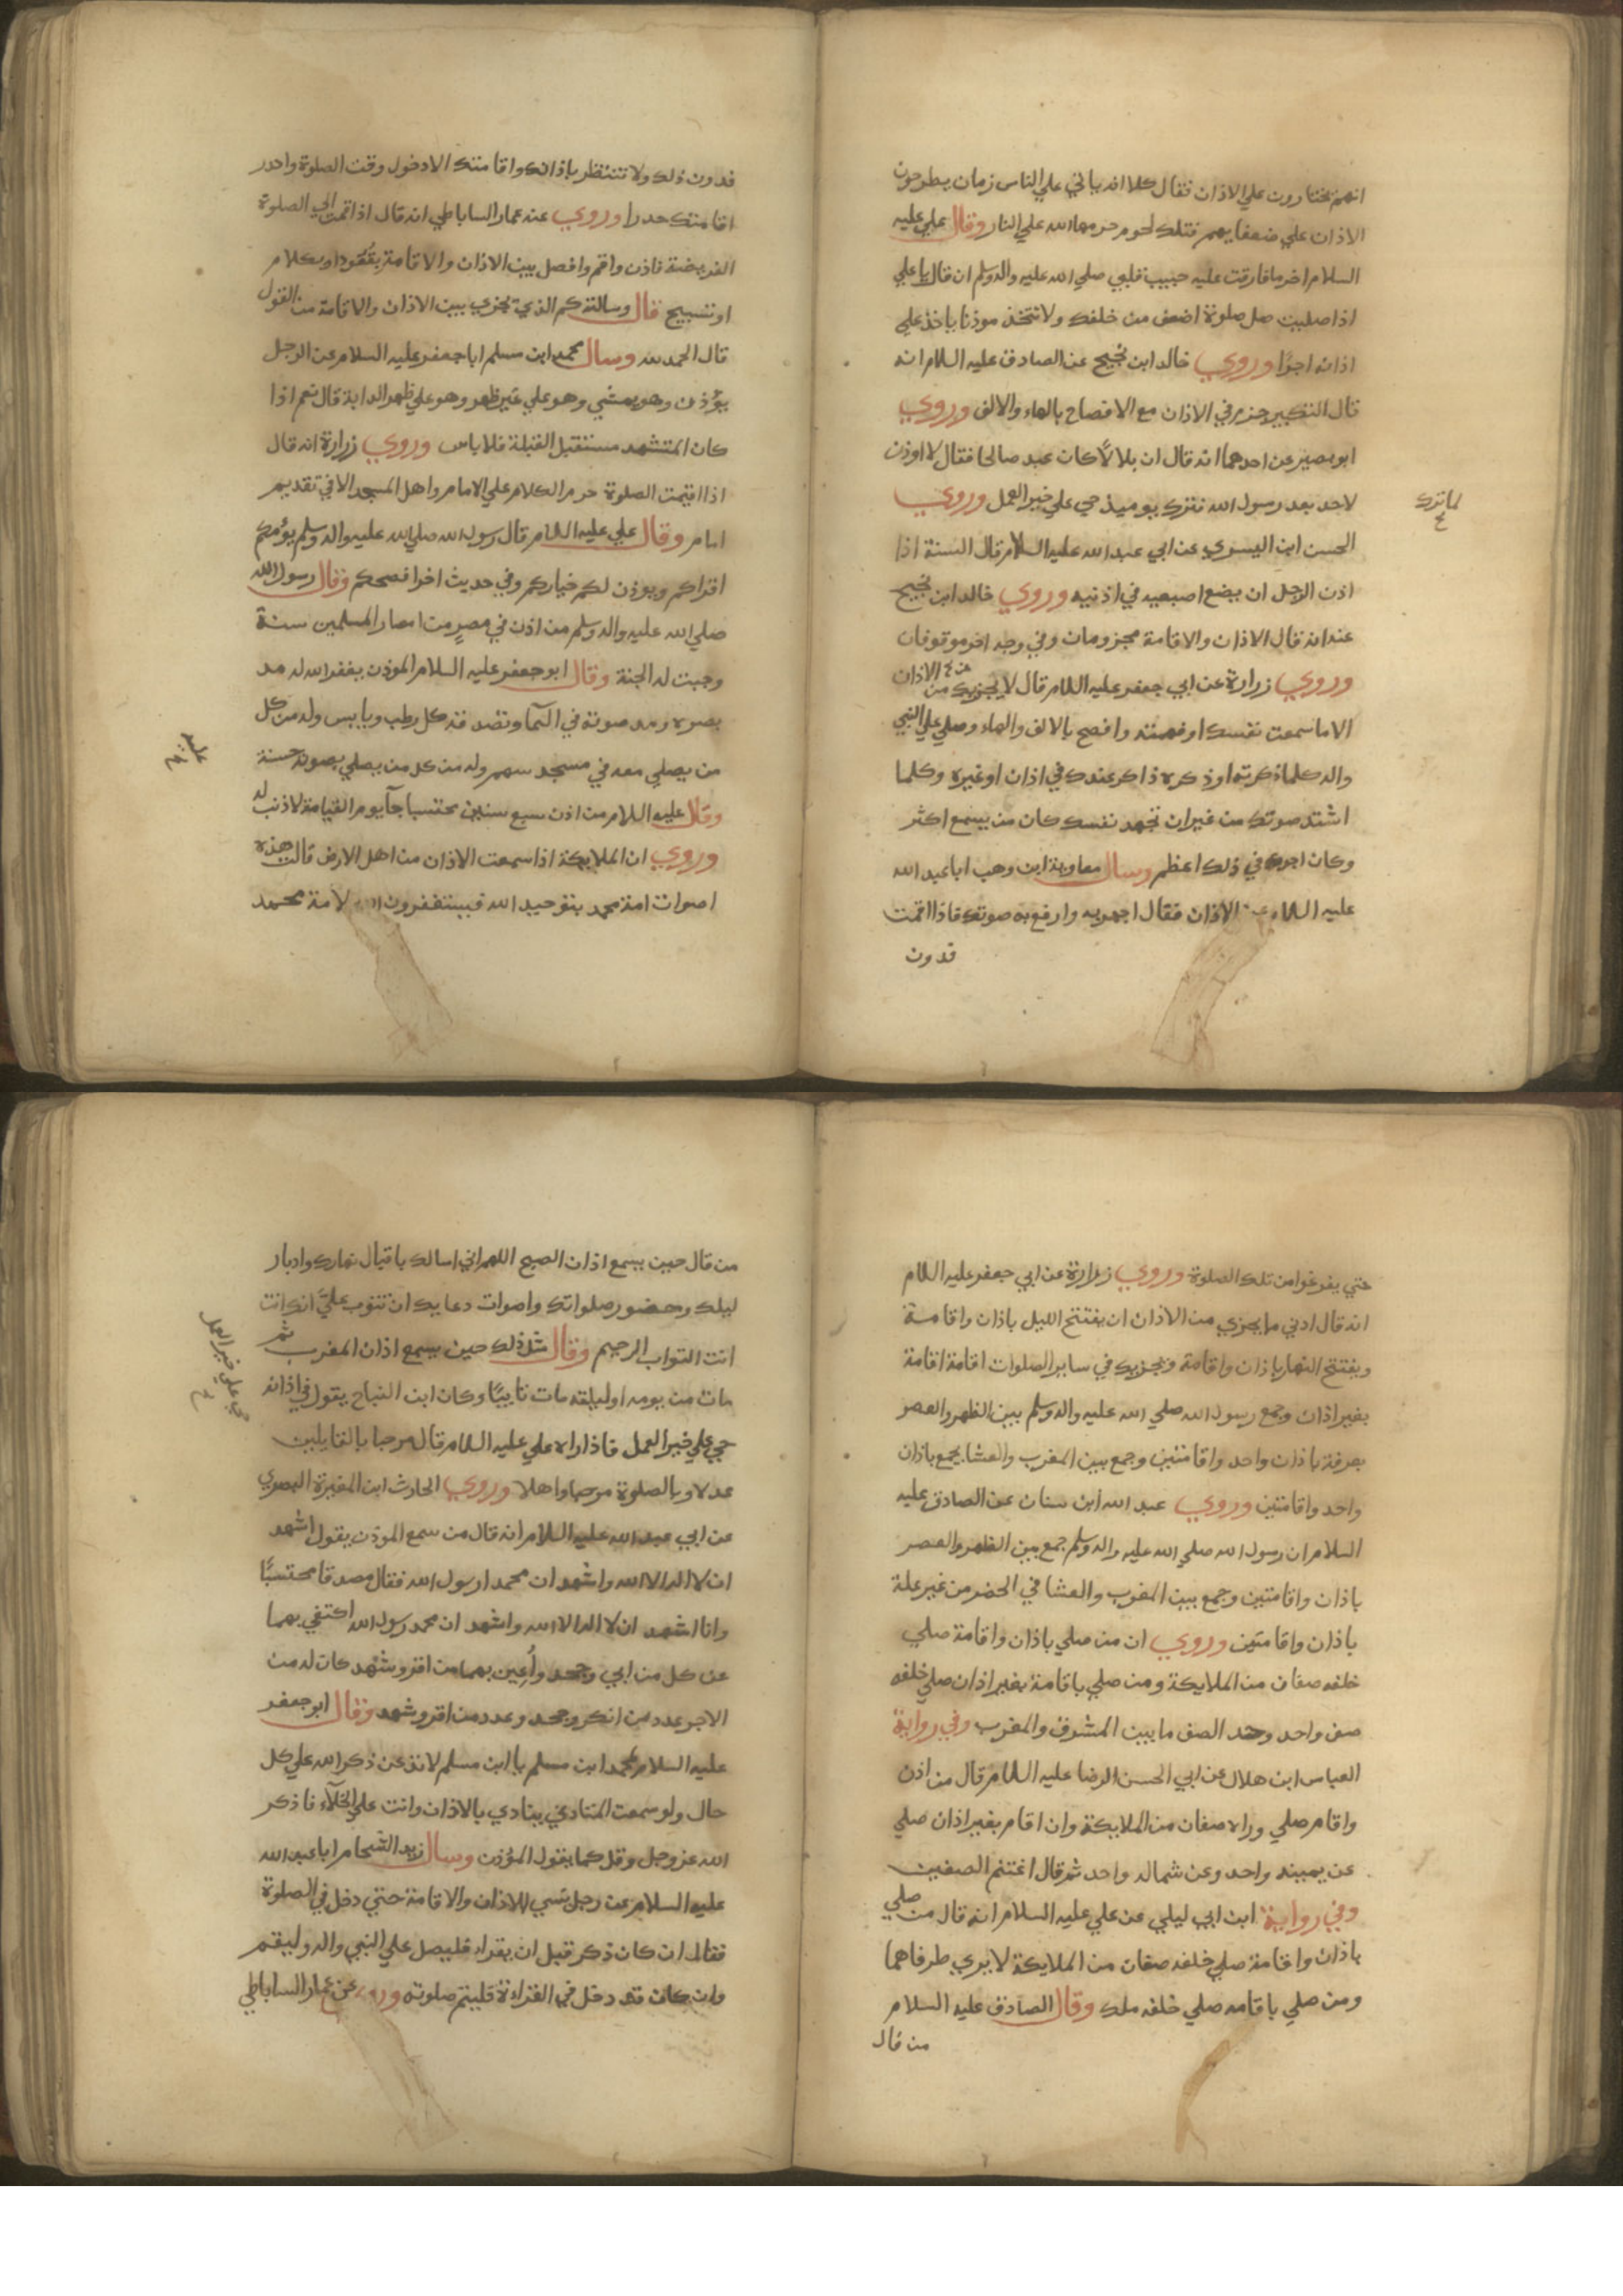 انهم يختارون علي الاذان فقال كلا انه ياتي علي الناس زمان يطرحون
الاذان علي ضعفايهم فتلك لحوم حرمها الله علي النار وقال علي عليه
السلام اخر ما فارقت عليه حبيب قلبي صلي الله عليه واله وسلم ان قال يا علي
اذا صليت صل صلوة اضعف من خلفك ولا تتخذ موذنا ياخذ علي
اذانه اجرًا وروي خالد ابن نجيح عن الصادق عليه السلام انه
قال التكبير جزم في الاذان مع الافصاح بالهاء والالف وروي
ابو بصير عن احدهما انه قال ان بلالًا كان عبد صالحا فقال لا اوذن
لاحد بعد رسول الله فترك يوميذ حي علي خير العمل وروي
لما ترك
الحسن ابن اليسري عن ابي عبد الله عليه السلام قال السنة اذا
اذن الرجل ان يضع اصبعيه في اذنيه وروي خالد ابن نجيح
عنه انه قال الاذان والاقامة مجزومان وفي وجه اخر موقوفان
وروي زرارة عن ابي جعفر عليه السلام قال لا يجزيك من الاذان
الا ما سمعت نفسك او فهمته وافصح بالالف والهاء وصلي علي النبي
واله كلما ذكرته او ذكره ذاكر عندك في اذان او غيره وكلما
اشتد صوتك من غير ان تجهد نفسك كان من يسمع اكثر
وكان اجرك في ذلك اعظم وسال معاوية ابن وهب ابا عبد الله
عليه السلام عن الاذان فقال اجهر به وارفع به صوتك فاذا اقمت
فدون
فدون ذلك ولا تنتظر باذانك واقامتك الا دخول وقت الصلوة واحدر
اقامتك حدرا وروي عنه عمار الساباطي انه قال اذا قمت الي الصلوة
الفريضة فاذن واقم وافصل بين الاذان والاقامة بقُعُود او بكلام
او تسبيح قال وسالته كم الذي يجزي بين الاذان والاقامة من القول
قال الحمد لله وسال محمد ابن مسلم ابا جعفر عليه السلام عن الرجل
يوذن وهو يمشي وهو علي غير ظهر وهو علي ظهر الدابة قال نعم اذا
كان المتشهد مستقبل القبلة فلا باس وروي زرارة انه قال
اذا اقيمت الصلوة حرم الكلام علي الامام واهل المسجد الا في تقديم
امام وقال علي عليه السلام قال رسول الله صلي الله عليه واله وسلم يؤمكم
اقراكم ويوذن لكم خياركم وفي حديث اخر افصحكم وقال رسول الله
صلي الله عليه واله وسلم من اذن في مصرٍ من امصار المسلمين سنة
وجبت له الجنة وقال ابو جعفر عليه السلام الموذن يغفر الله له مد
بصره ومد صوته في السما وتصدقه كل رطب ويابس وله من كل
من يصلي معه في مسجد سهم وله من كل من يصلي بصوته حسنة
وقال عليه السلام من اذن سبع سنين محتسبا جآ يوم القيامة لا ذنب له
وروي ان الملايكة اذا سمعت الاذان من اهل الارض قالت هذه
اصوات امة محمد بتوحيد الله فيستغفرون الله لامة محمد
حتي يفرغوا من تلك الصلوة وروي زرارة عن ابي جعفر عليه السلام
انه قال ادني ما يجزي من الاذان ان يفتتح الليل باذان واقامة
ويفتتح النهار باذان واقامة ويجزيك في ساير الصلوات اقامة اقامة
بغير اذان وجمع رسول الله صلي الله عليه واله وسلم بين الظهر والعصر
بعرفة باذان واحد واقامتين وجمع بين المغرب والعشا بجمع باذان
واحد واقامتين وروي عبد الله ابن سنان عن الصادق عليه
السلام ان رسول الله صلي الله عليه واله وسلم جمع بين الظهر والعصر
باذان واقامتين وجمع بين المغرب والعشا في الحضر من غير علة
باذان واقامتين وروي ان من صلي باذان واقامة صلي
خلفه صفان من الملايكة ومن صلي باقامة بغير اذان صلي خلفه
صف واحد وحد الصف ما بين المشرق والمغرب وفي رواية
العباس ابن هلال عن ابي الحسن الرضا عليه السلام قال من اذن
واقام صلي وراه صفان من الملايكة وان اقام بغير اذان صلي
عن يمينه واحد وعن شماله واحد ثم قال اغتنم الصفين
وفي رواية ابن ابي ليلي عن علي عليه السلام انه قال من صلي
باذان واقامة صلي خلفه صفان من الملايكة لا يري طرفاهما
ومن صلي باقامه صلي خلفه ملك وقال الصادق عليه السلام
من قال
من قال حين يسمع اذان الصبح اللهم اني اسالك باقبال نهارك وادبار
ليلك وحضور صلواتك واصوات دعايك ان تتوب عليَّ انك انت
انت التواب الرحيم وقال مثل ذلك حين يسمع اذان المغرب ثم
مات من يومه او ليلته مات تايبًا وكان ابن النباح يقول في اذانه
حي علي خير العمل
حي علي خير العمل فاذا راه علي عليه السلام قال مرحبا بالقايلين
عدلا وبالصلوة مرحبا واهلا وروي الحارث ابن المغيرة البصري
عن ابي عبد الله عليه السلام انه قال من سمع الموذن يقول اشهد
ان لا اله الا الله واشهد ان محمدا رسول الله فقال مصدقا محتسبًا
وانا اشهد ان لا اله الا الله واشهد ان محمد رسول الله اكتفي بهما
عن كل من ابي وجحد وأُعين بهما من اقر وشهد كان له من
الاجر عدد من انكر وجحد وعدد من اقر وشهد وقال ابو جعفر
عليه السلام لمحمد ابن مسلم يا ابن مسلم لا تدعن ذكر الله علي كل
حال ولو سمعت المنادي ينادي بالاذان وانت علي الخلآء فاذكر
الله عز وجل وقل كما يقول المؤذن وسال زيد الشحام ابا عبد الله
عليه السلام عن رجل نسي الاذان والاقامة حتي دخل في الصلوة
فقال ان كان ذكر قبل ان يقراء فليصل علي النبي واله وليقم
وان كان قد دخل في القراءة فليتم صلوته وروي عن عمار الساباطي